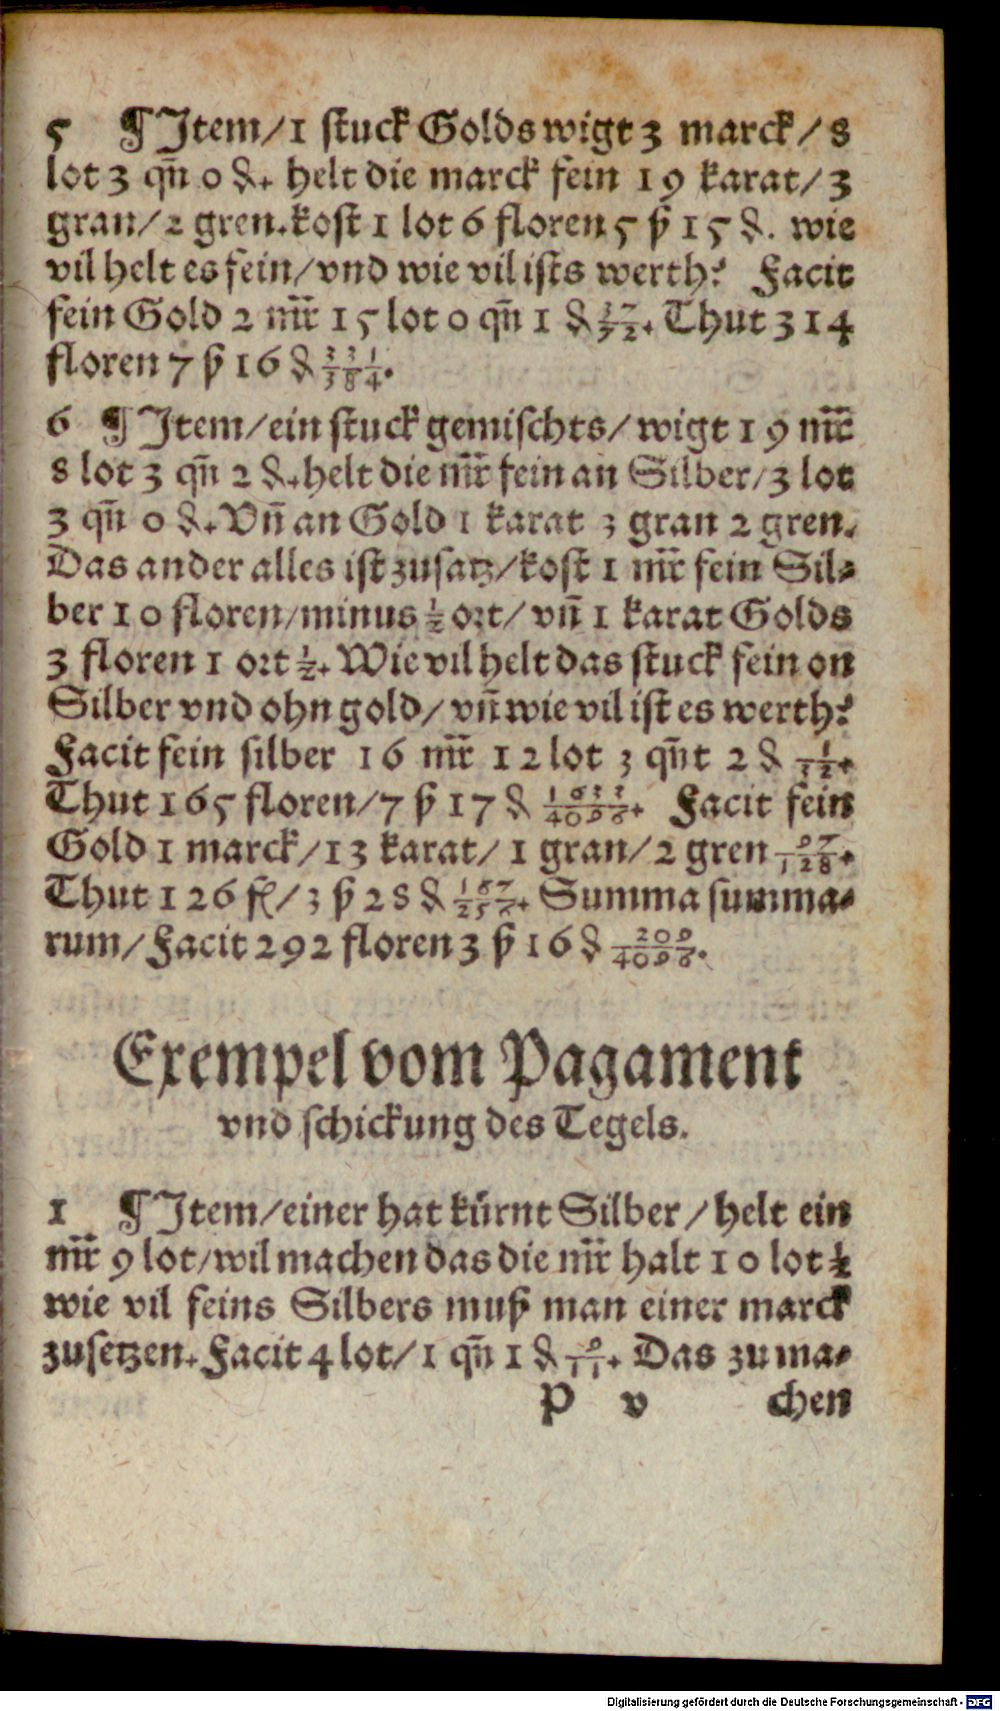 5 ¶ Item/1 stuck Golds wigt 3 marck/8
lot 3 qñ 0 ₰. helt die marck fein 19 karat/3
gran/2 gren. kost 1 lot 6 floren 5 ß 15 ₰. wie
vil helt es fein/vnd wie vil ists werth? Facit
fein Gold 2 mr̃ 15 lot 0 qñ 1 ₰ 37/72. Thut 314
floren 7 ß 16 ₰ 331/384.
6 ¶ Item/ein stuck gemischts/wigt 19 mr̃
8 lot 3 qñ 2 ₰. helt die mr̃ fein an Silber/3 lot
3 qñ 0 ₰. Vñ an Gold 1 karat 3 gran 2 gren.
Das ander alles ist zusatz/kost 1 mr̃ fein Sil-
ber 10 floren/minus ½ ort/vñ 1 karat Golds
3 floren 1 ort ½. Wie vil helt das stuck fein on
Silber vnd ohn gold/vñ wie vil ist es werth?
Facit fein silber 16 mr̃ 12 lot 3 qñt 2 ₰ 1/32.
Thut 165 floren/7 ß 17 ₰ 1633/4096. Facit fein
Gold 1 marck/13 karat/1 gran/2 gren 97/128.
Thut 126 fl/3 ß 28 ₰ 167/256. Summa summa-
rum/Facit 292 floren 3 ß 16 ₰ 209/4096.
Exempel vom Pagament
vnd schickung des Tegels.
1 ¶ Item/einer hat kürnt Silber/helt ein
mr̃ 9 lot/wil machen das die mr̃ halt 10 lot ½
wie vil feins Silbers muß man einer marck
zusetzen. Facit 4 lot/1 qñ 1 ₰ 9/11. Das zu ma-
P v chen
Digitalisierung gefördert durch die Deutsche Forschungsgemeinschaft - DFG